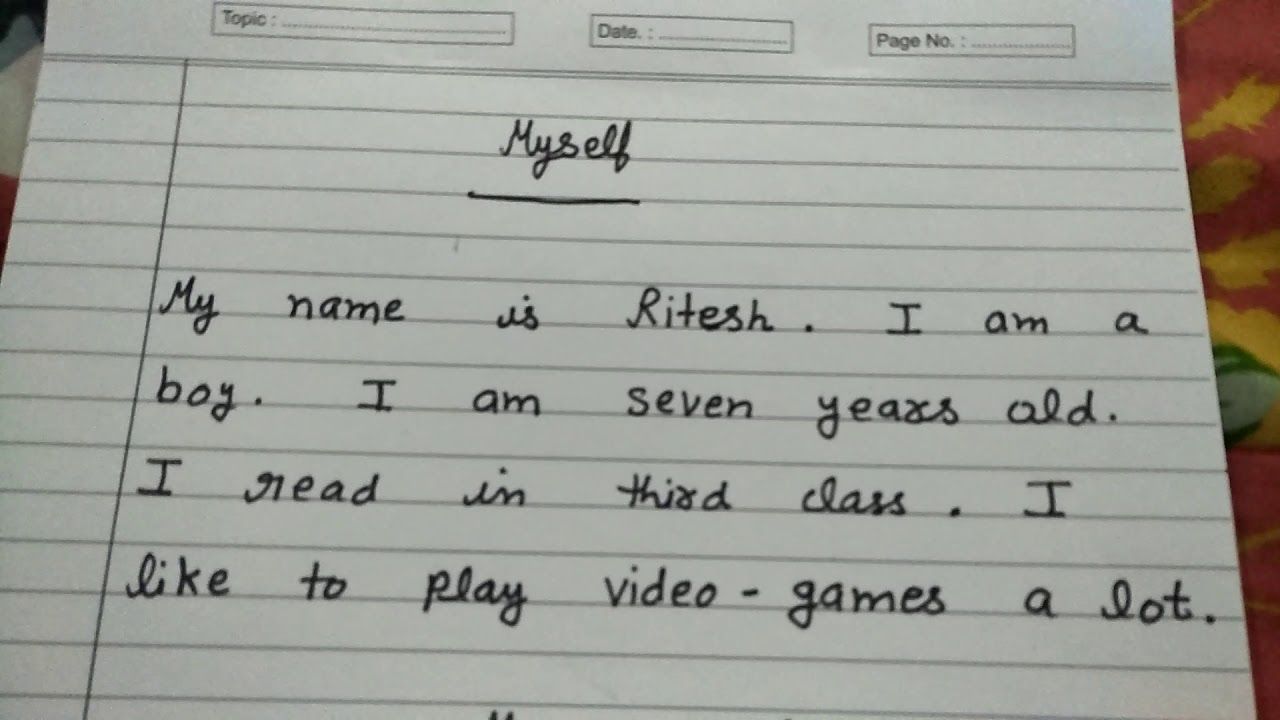 Topic : Date. : Page No. :
Myself
My name is Ritesh. I am a
boy. I am seven years old.
I read in third class. I
like to play video-games a lot.